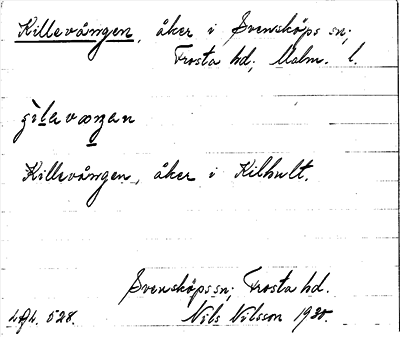 Killevången, åker i Svensköps sn;
Frosta hd; Malm. l.
Killevången, åker i Kilhult.
Svensköps sn; Frosta hd.
528. Nils Nilsson 1930.